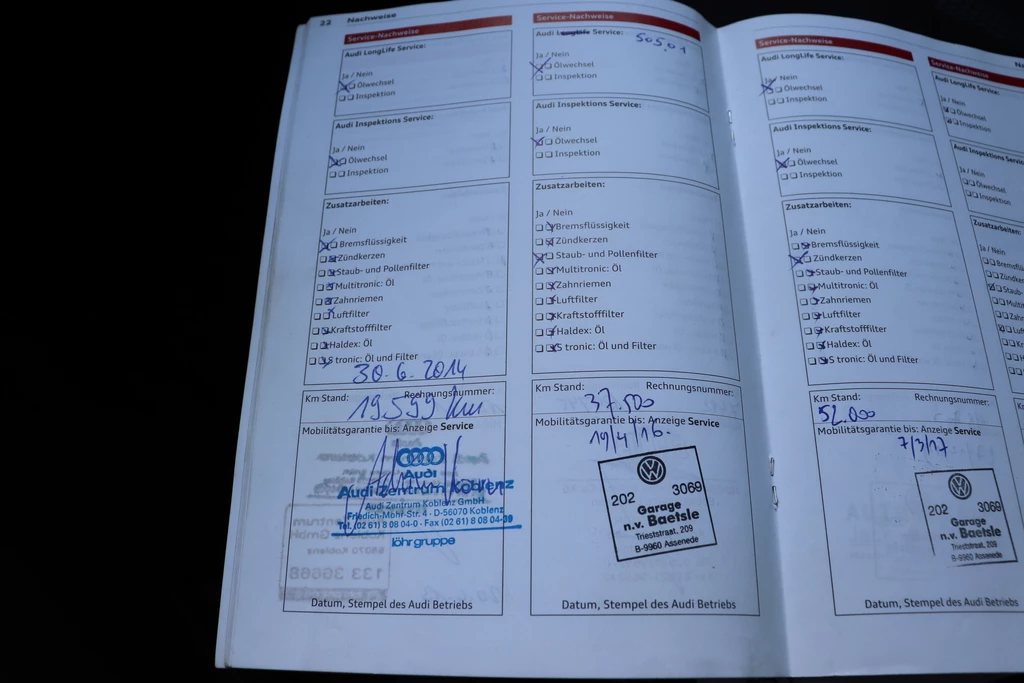 22 Nachweise
Service-Nachweise
Audi LongLife Service:
Ja / Nein
Ölwechsel
Inspektion
Audi Inspektions Service:
Ja / Nein
Ölwechsel
Inspektion
Zusatzarbeiten:
Ja / Nein
Bremsflüssigkeit
Zündkerzen
Staub- und Pollenfilter
Multitronic: Öl
Zahnriemen
Luftfilter
Kraftstofffilter
Haldex: Öl
S tronic: Öl und Filter
30.6.2014
Km Stand: Rechnungsnummer:
19599 km
Mobilitätsgarantie bis: Anzeige Service
Audi
Audi Zentrum Koblenz
Audi Zentrum Koblenz GmbH
Friedrich-Mohr-Str. 4 - D-56070 Koblenz
Tel. (02 61) 8 08 04-0 - Fax (02 61) 8 08 04-39
löhrgruppe
Datum, Stempel des Audi Betriebs
Service-Nachweise
Audi LongLife Service: 505,01
Ja / Nein
Ölwechsel
Inspektion
Audi Inspektions Service:
Ja / Nein
Ölwechsel
Inspektion
Zusatzarbeiten:
Ja / Nein
Bremsflüssigkeit
Zündkerzen
Staub- und Pollenfilter
Multitronic: Öl
Zahnriemen
Luftfilter
Kraftstofffilter
Haldex: Öl
S tronic: Öl und Filter
Km Stand: Rechnungsnummer:
37.500
Mobilitätsgarantie bis: Anzeige Service
19/4/16.
202 3069
Garage
n.v. Baetsle
Trieststraat. 209
B-9960 Assenede
Datum, Stempel des Audi Betriebs
Service-Nachweise
Audi LongLife Service:
Ja / Nein
Ölwechsel
Inspektion
Audi Inspektions Service:
Ja / Nein
Ölwechsel
Inspektion
Zusatzarbeiten:
Ja / Nein
Bremsflüssigkeit
Zündkerzen
Staub- und Pollenfilter
Multitronic: Öl
Zahnriemen
Luftfilter
Kraftstofffilter
Haldex: Öl
S tronic: Öl und Filter
Km Stand: Rechnungsnummer:
52.000
Mobilitätsgarantie bis: Anzeige Service
7/3/17
202 3069
Garage
n.v. Baetsle
Trieststraat. 209
B-9960 Assenede
Datum, Stempel des Audi Betriebs
Service-Nachweise
Audi LongLife Service:
Ja / Nein
Ölwechsel
Inspektion
Audi Inspektions Service:
Ja / Nein
Ölwechsel
Inspektion
Zusatzarbeiten:
Ja / Nein
Km Stand:
Mobilitätsg
Datum,